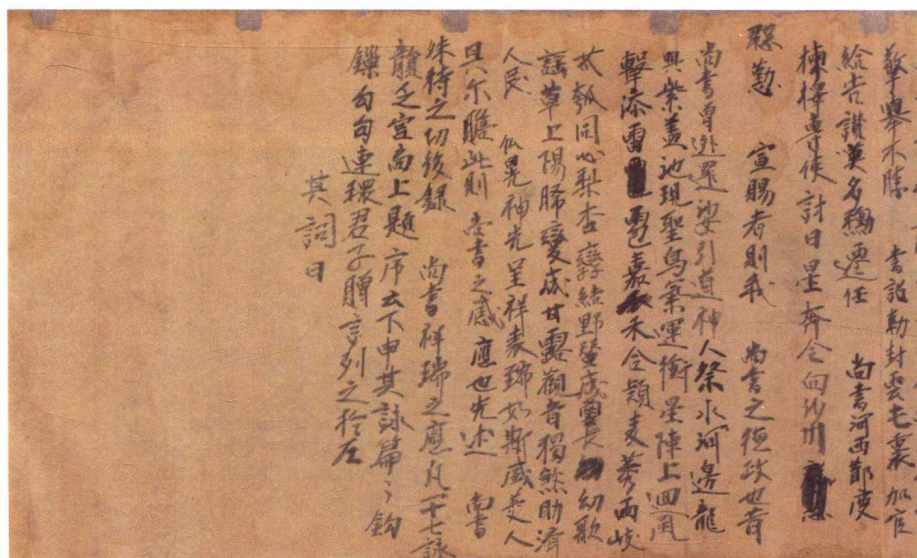 擎舉不勝　書詔勅封雲毛裏加官
給告讚美名鴻遷任　尚書河西節度
揀擇專使計日星奔令向沙州
慇懃　宣賜者則我　尚書之德政也昔
尚書曾遊逐婆引道神人祭水河邊龍
興紫蓋池現聖鳥氣運衝星陣上迴風
擊添雷電雹嘉禾合穎麥秀兩岐
枝瓠同心梨杏孿結野蠶成繭幼歌
謠草上陽晞變成甘露觀音獨煞助濟
人民　仏晃神光呈祥表瑞如斯盛美人
具尔瞻此則　尚書之感應也先述　尚書
殊特之功後錄　尚書祥瑞之應凡一十七詠
觀乏宮商上題序云下申其詠篇〻鈎
鏁句句連環君子瞔言列之於左
其詞曰